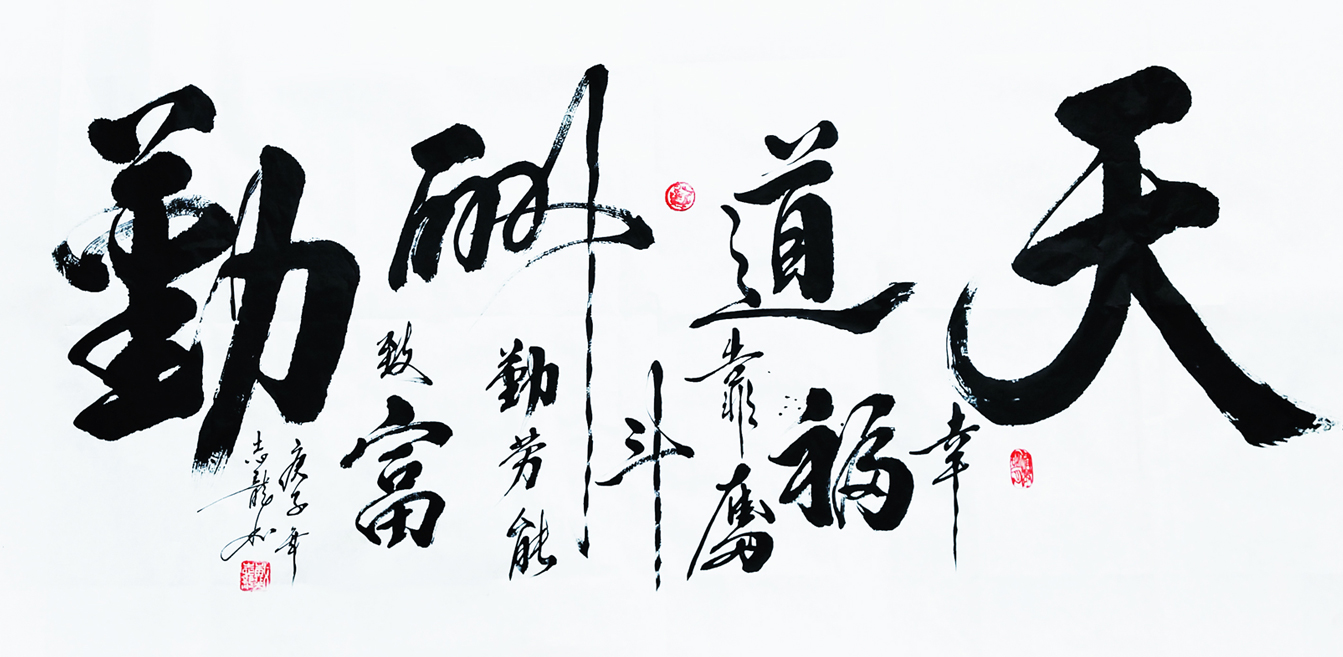 天道酬勤
幸福靠奮斗
勤劳能致富
庚子年
志龍书